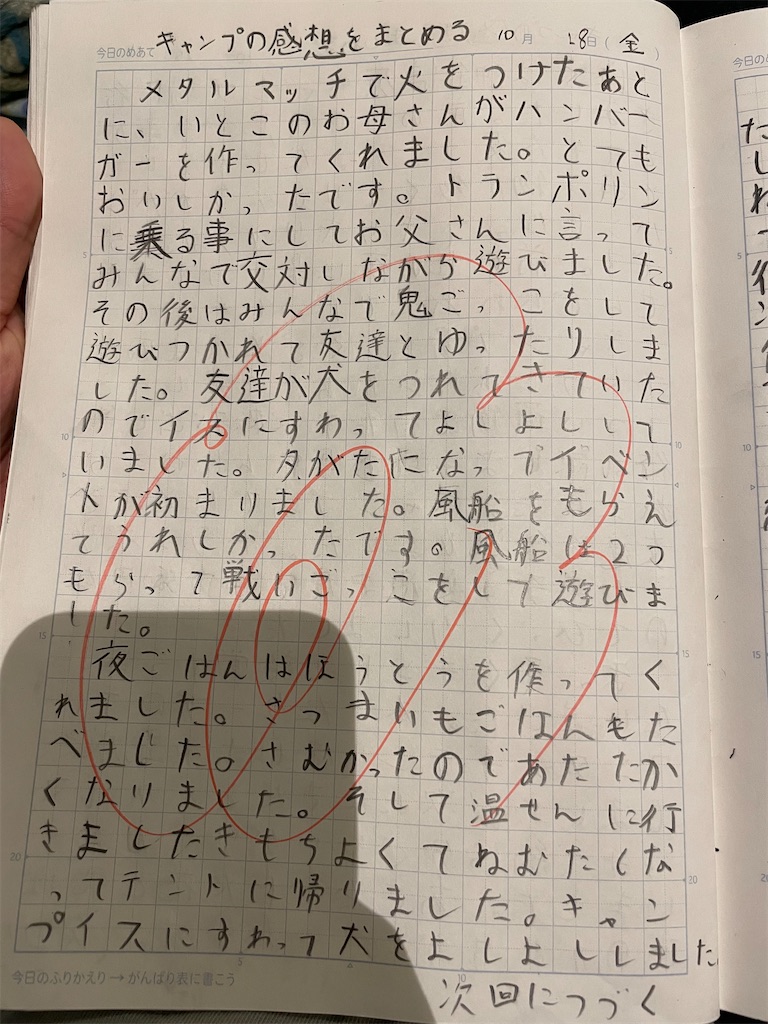 今日のめあて キャンプの感想をまとめる 10月 18日(金)
メタルマッチで火をつけたあと
に、いとこのお母さんがハンバー
ガーを作ってくれました。とても
おいしかったです。トランポリン
に乗る事にしてお父さんに言って
みんなで交対しながら遊びました。
その後はみんなで鬼ごっこをして
遊びつかれて友達とゆったりしま
した。友達が犬をつれてきていた
のでイスにすわってよしよしして
いました。夕がたになってイベン
トが初まりました。風船をもらえ
てうれしかったです。風船は2つ
もらって戦いごっこをして遊びま
した。
夜ごはんはほうとうを作ってく
れました。さつまいもごはんもた
べました。さむかったのであたたか
くなりました。そして温せんに行
きましたきもちよくてねむたくな
ってテントに帰りました。キャン
プイスにすわって犬をよしよししました
今日のふりかえり→がんばり表に書こう
次回につづく
5
10
15
20
5
10
15
20
5
10